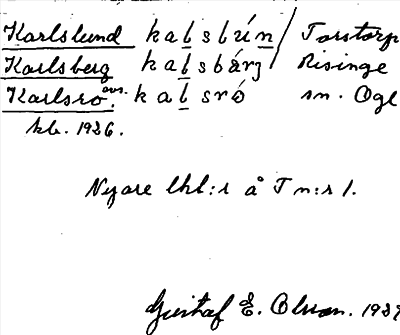 Karlslund kalslún / Torstorp
Karlsberg kalsbárj / Risinge
Karlsro avs. kalsró sn. Ögl
kb. 1926.
Nyare lhl:r å T n:r 1.
Gustaf E. Olsson. 1929